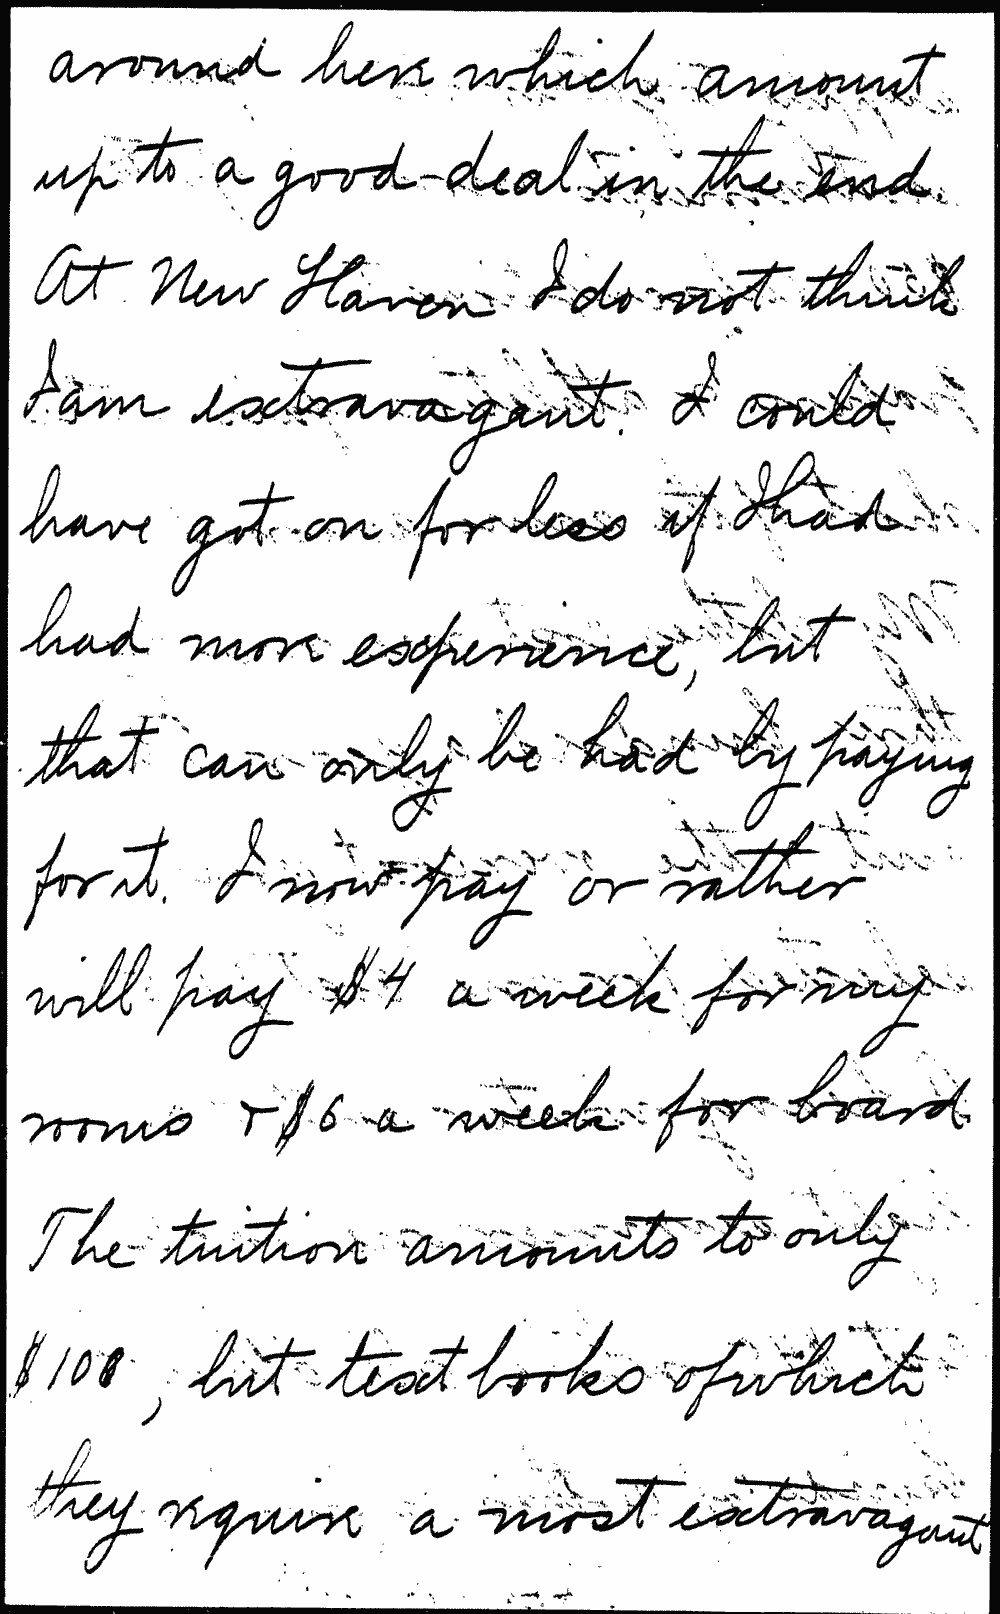 around here which amount
up to a good deal in the end.
At New Haven I do not think
I am extravagant. I could
have got on for less if I had
had more experience, but
that can only be had by paying
for it. I now pay or rather
will pay $4 a week for my
rooms + $6 a week for board
The tuition amounts to only
$100, but text books of which
they require a most extravagant